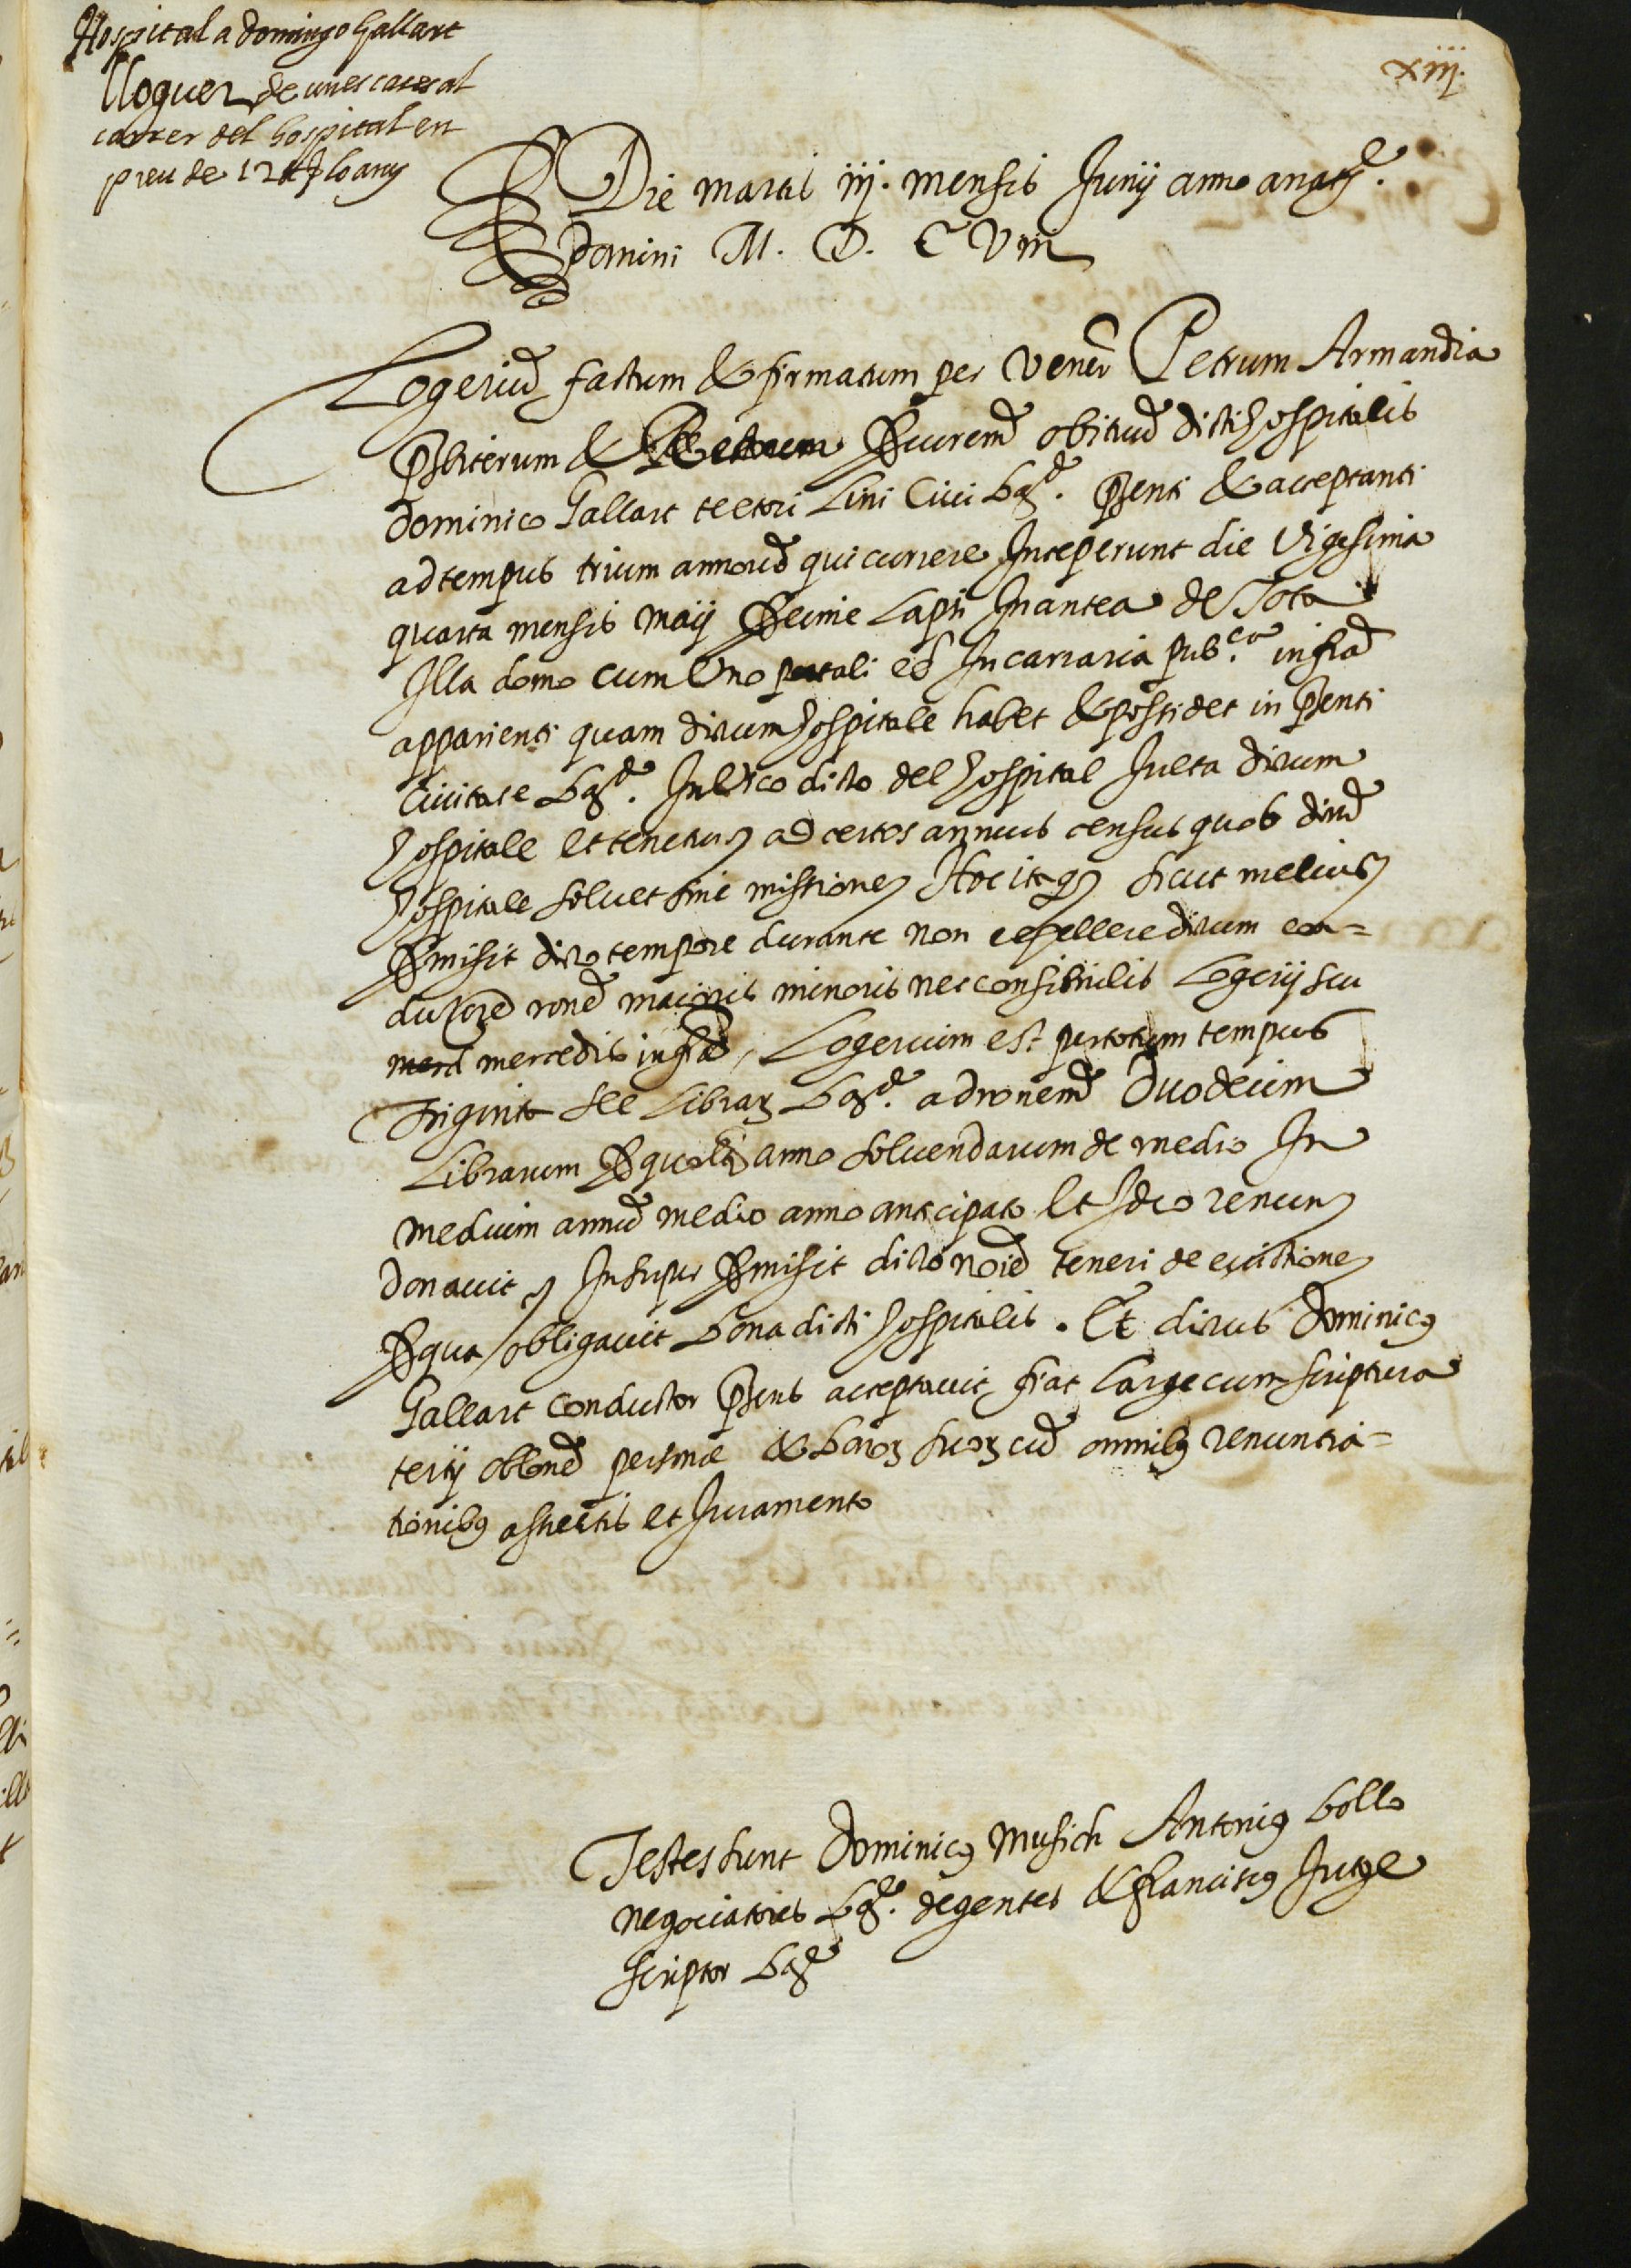 Hospital a domingo Gallart
lloguer de unes cases al
carrer del hospital en
preu de 12 ll lo any
xiij.
Die martis iij. mensis Junij anno a naty.e
Domini M. D. C Viii
Logeriu factum & firmatum per Vener Petrum Armandia
Psbiterum & Rectorem Procurem obituu dicti hospitalis
dominico Gallart textori Lini Ciui bar. Psenti & acceptanti
ad tempus trium annoru qui currere Inceperunt die Vigesima
quarta mensis maij Proxime Lapsi In antea de Tota
Illa domo cum Uno portali eo In carraria pub.ca infra
apparienti quam dictum hospitale habet & possidet in Psenti
Ciuitate bar. In Vico dicto del hospital Juxta dictum
hospitale et tenetur ad certos annuos census quos dictu
hospitale soluet sine missione Hoc itaq sicut melius
Promisit dicto tempore durante non expellere dictum con=
ductore rone maioris minoris nec consibilis Logerij seu
merd mercedis infra, Logerium est per totum tempus
Triginta sex Librar bar. ad ronem Duodecim
Librarum Pro quolt anno soluendarum de medio In
medium annu medio anno anticipato Et Ideo renun
donauit Insuper Promisit dicto noie teneri de euictione
Pro qua obligauit bona dicti hospitalis. Et dictus Dominicus
Gallart conductor Psens acceptauit fiat large cum scriptura
tertij oblone persone & bonor suor cu omnibus renuntia=
tionibus assuetis et Juramento
Testes sunt Dominicus Musich Antonius boll
negociatores bar. degentes & franciscus Jutge
scriptor bar